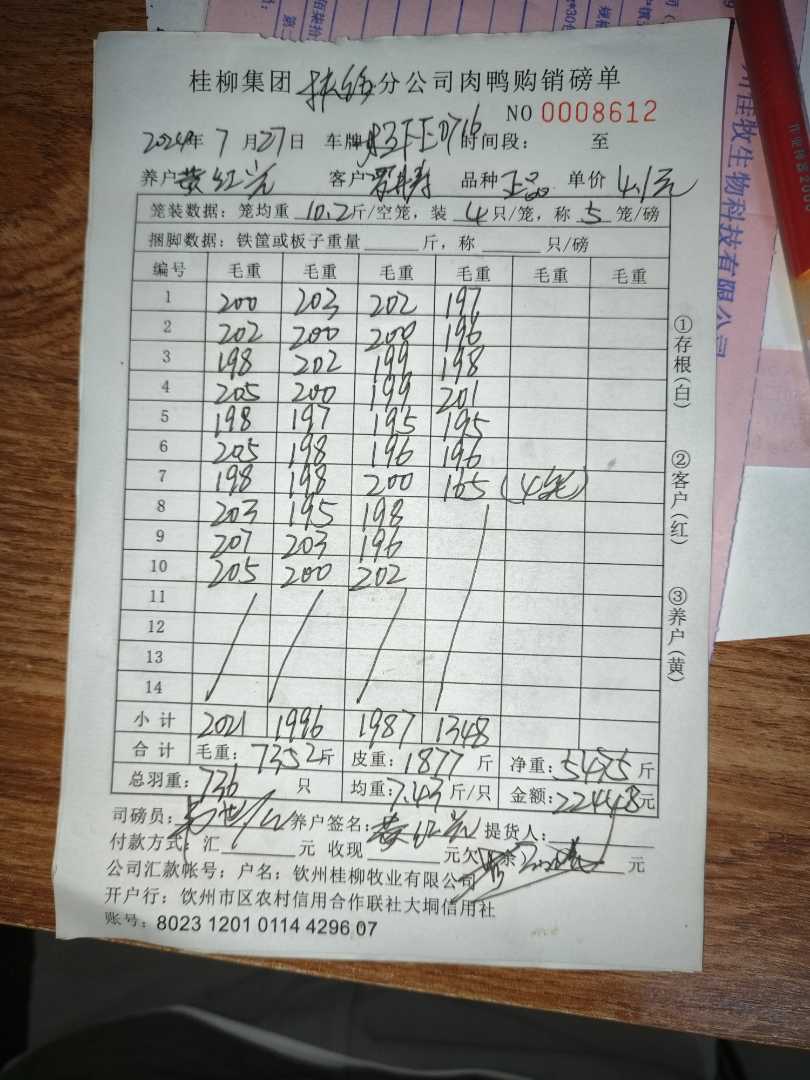 桂柳集团扶绥分公司肉鸭购销磅单
NO 0008612
2024年 7月27日 车牌 0716 时间段: 至
养户 黄红 客户 品种 正品 单价 4.1元
笼装数据: 笼均重 10.2斤/空笼,装 4只/笼,称 5笼/磅
捆脚数据: 铁筐或板子重量 斤,称 只/磅
编号 毛重 毛重 毛重 毛重 毛重 毛重
1 200 203 202 197
2 202 200 200 196
3 198 202 199 198
4 205 200 199 201
5 198 197 195 195
6 205 198 196 196
7 198 198 200 165 (4笼)
8 203 195 198
9 207 203 196
10 205 200 202
11
12
13
14
小计 2021 1996 1987 1348
合计 毛重: 7352斤 皮重: 1877斤 净重: 5475斤
总羽重: 736只 均重: 7.43斤/只 金额: 22448元
司磅员: 养户签名: 黄红 提货人:
付款方式: 汇 元 收现 元欠 条 元
公司汇款帐号; 户名; 钦州桂柳牧业有限公司
开户行: 钦州市区农村信用合作联社大垌信用社
账号: 8023 1201 0114 4296 07
①存根(白)
②客户(红)
③养户(黄)
牧生物科技有限公司